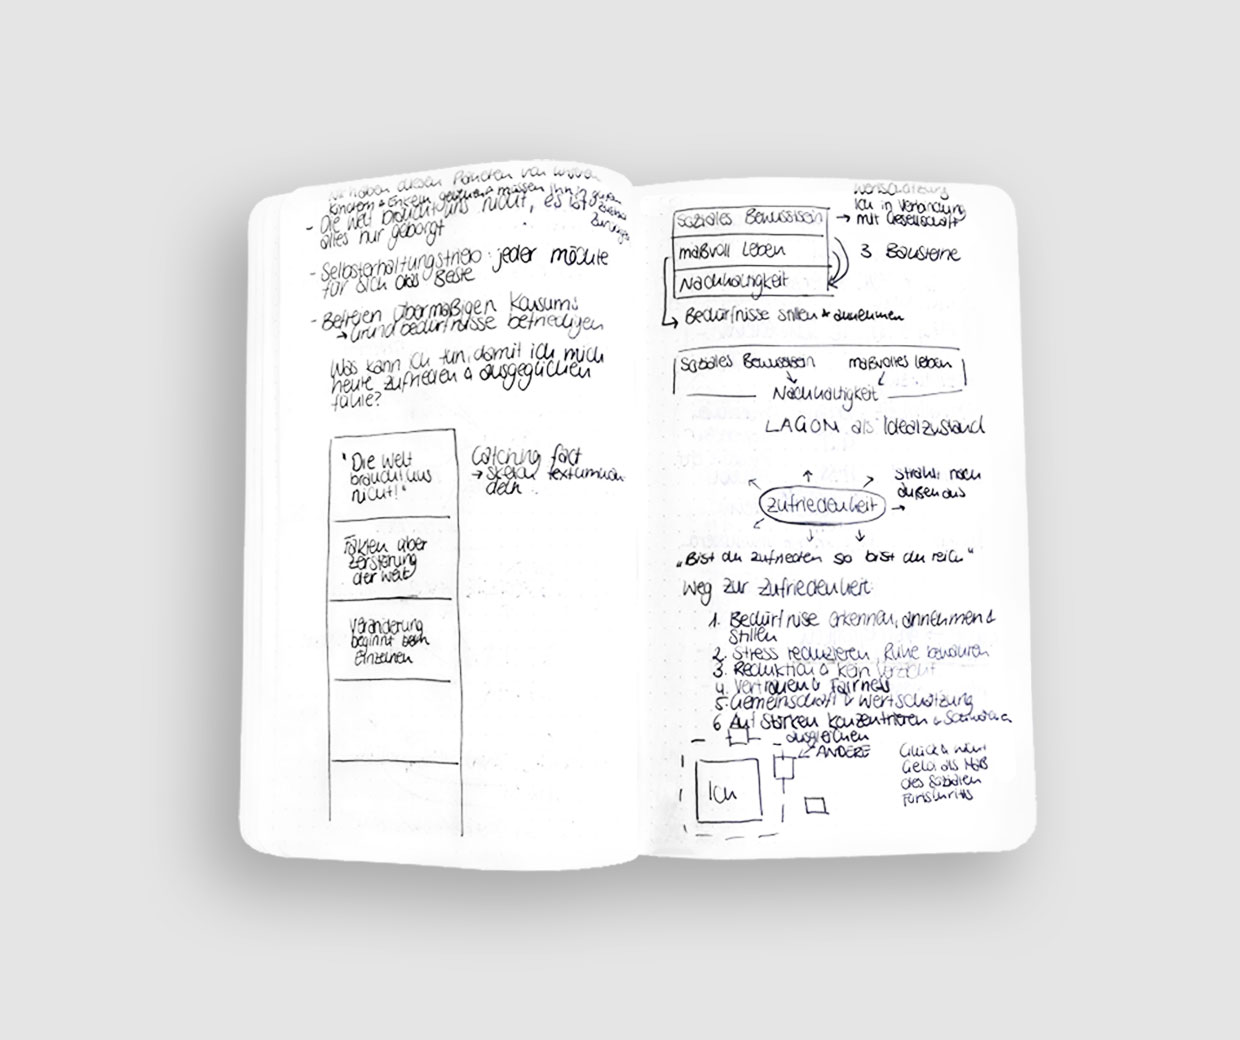 Wir haben diesen Planeten von unseren
Kindern & Enkeln geliehen & müssen ihn in gutem
- Die Welt braucht uns nicht, es ist
alles nur geborgt
- Selbsterhaltungstrieb: jeder möchte
für sich das Beste
- Befreien übermäßigen Konsums
→ Grundbedürfnisse befriedigen
Was kann ich tun, damit ich mich
heute zufrieden & ausgeglichen
fühle?
"Die Welt
braucht uns
nicht!"
Catching fact
→ Sketch
Fakten über
Zerstörung
der Welt
Veränderung
beginnt beim
Einzelnen
Wertschätzung
Ich in Verbindung
mit Gesellschaft
Soziales Bewusstsein →
maßvoll Leben
3 Bausteine
Nachhaltigkeit
→ Bedürfnisse stillen & annehmen
Soziales Bewusstsein maßvolles leben
Nachhaltigkeit
LAGOM als Idealzustand
Strahlt nach
außen aus
Zufriedenheit
„Bist du zufrieden so bist du reich"
Weg zur Zufriedenheit:
1. Bedürfnise erkennen, annehmen &
Stillen
2. Stress reduzieren, Ruhe bewahren
3. Reduktion & kein Verzicht
4. Vertrauen & Fairness
5. Gemeinschaft & Wertschätzung
6 Auf Stärken konzentrieren & Schwächen
ausgleichen
ANDERE
Ich
Glück & nicht
Geld als Maß
des Sozialen
Fortschritts